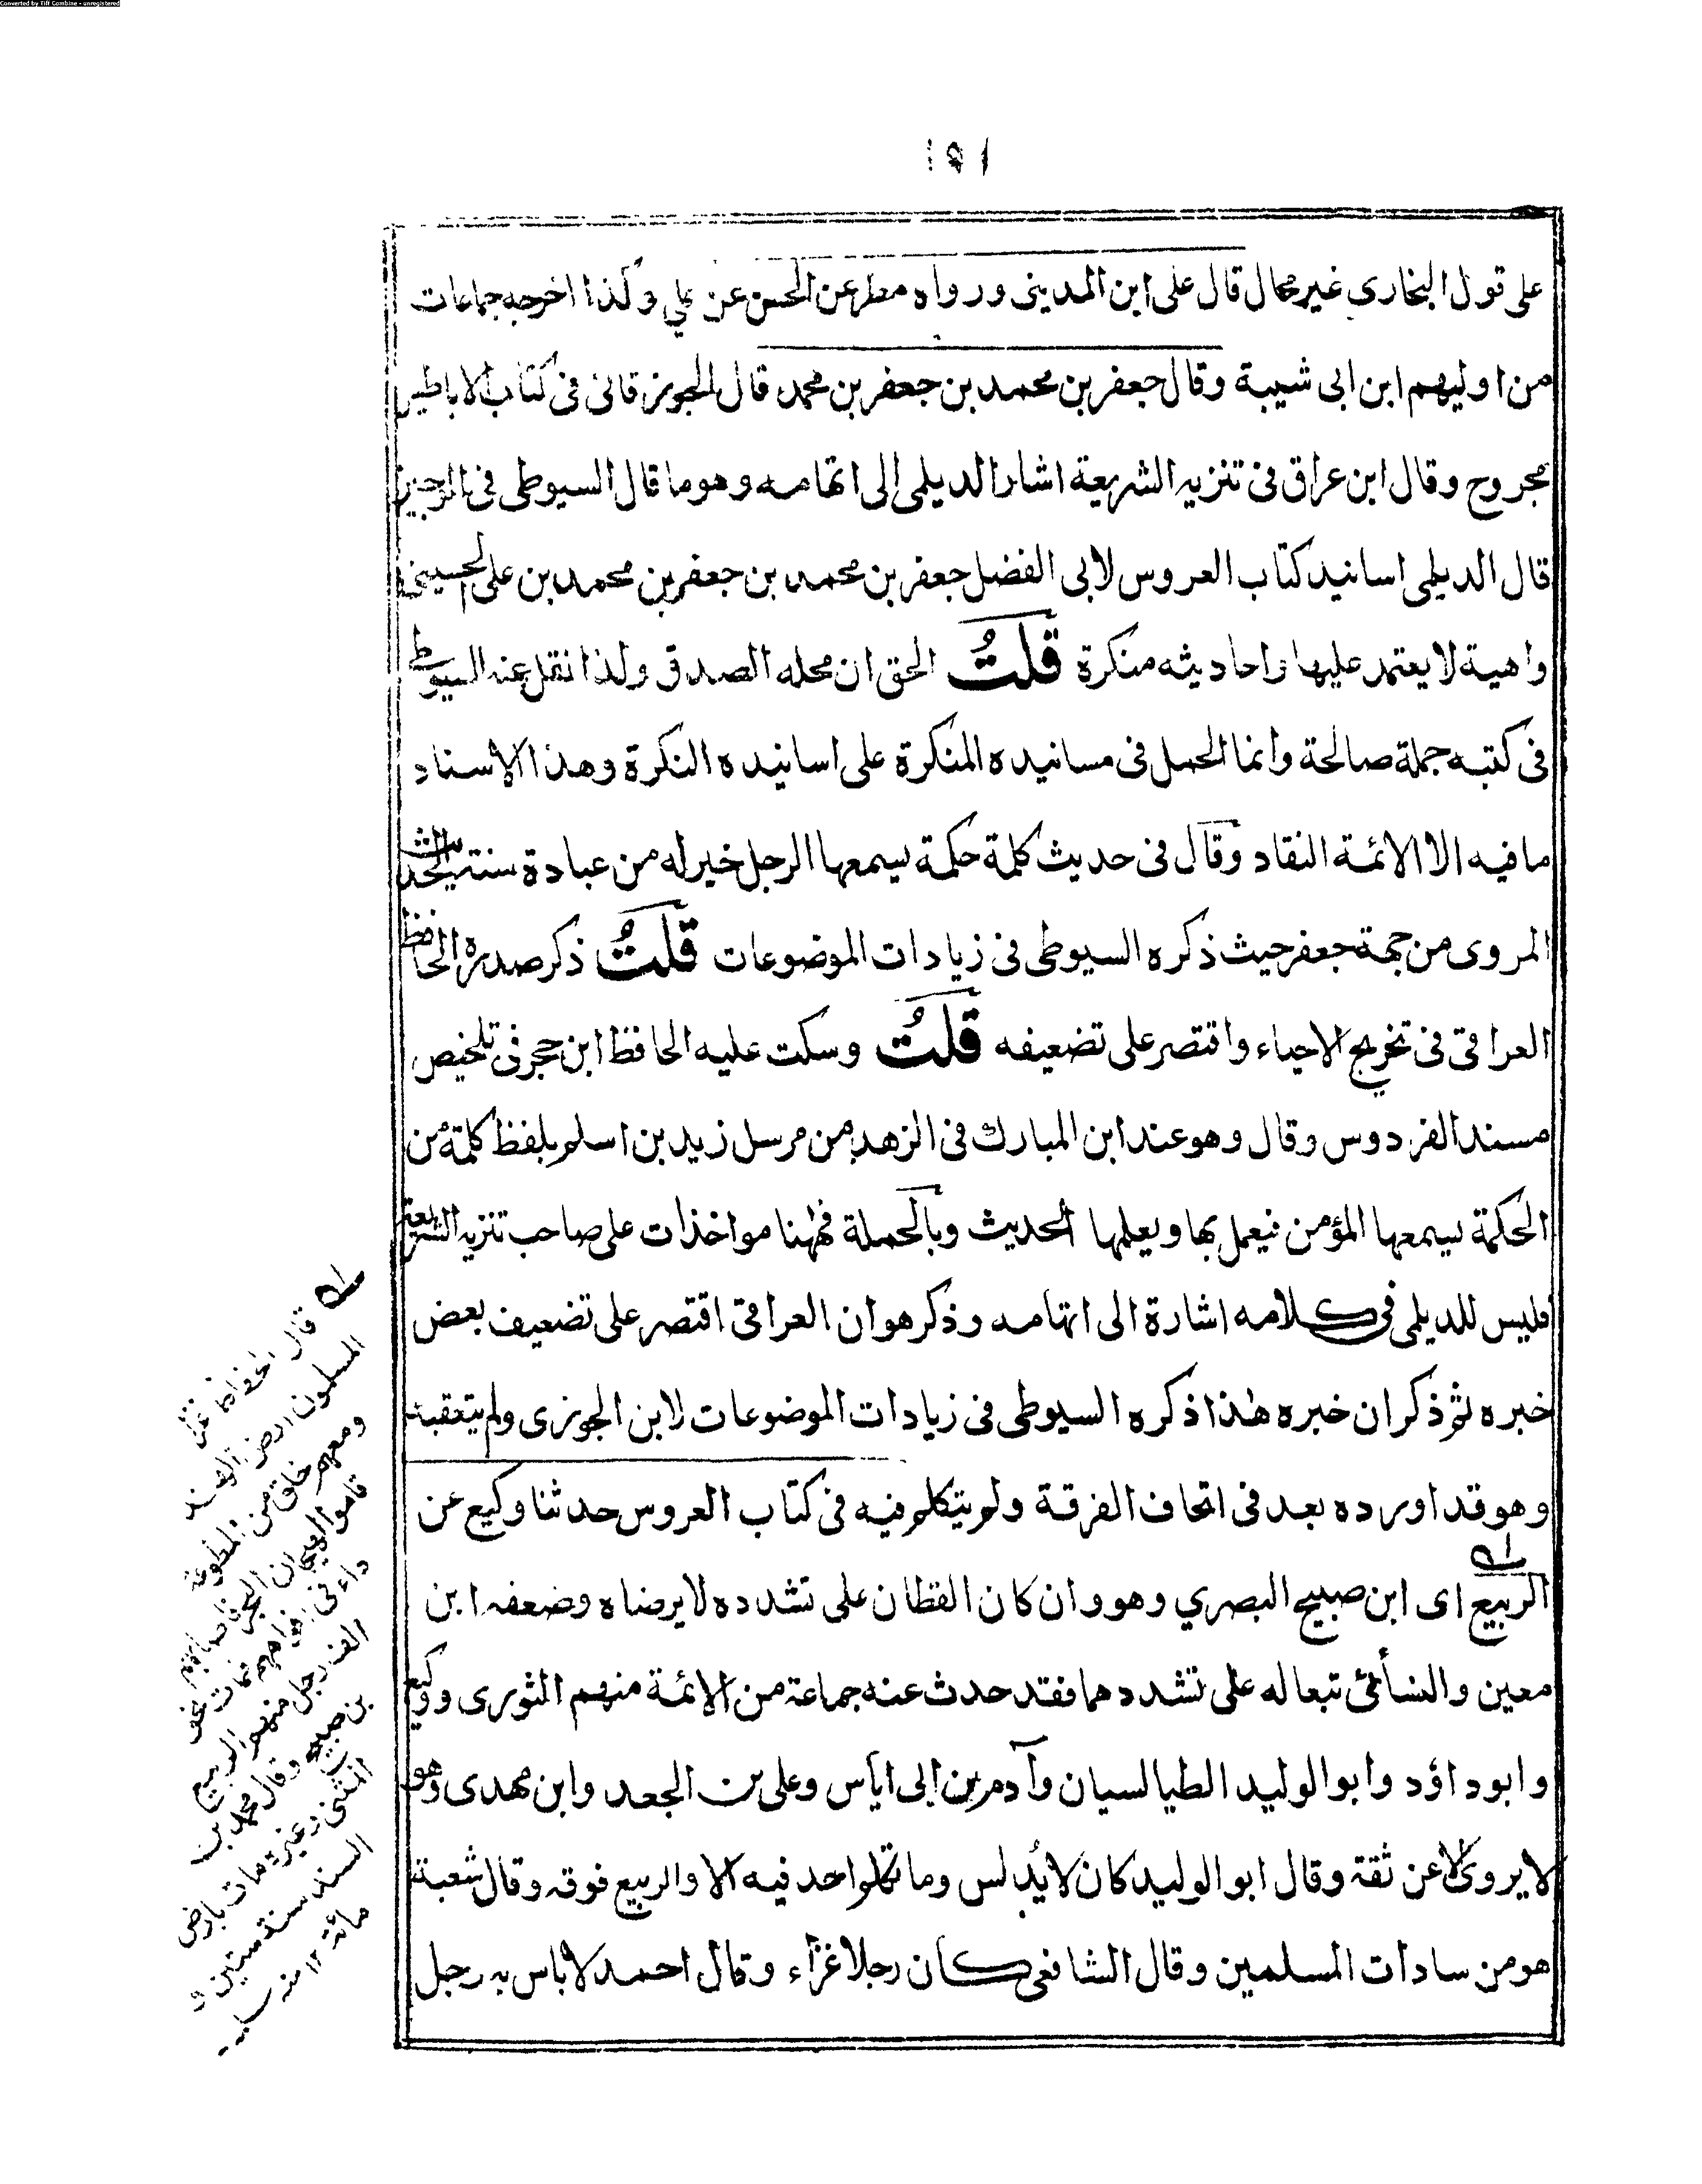 Converted by Tiff Combine - unregistered
على قول البخارى غير محال قال على ابن المدينى ورواه مطر عن الحسن عن على وكذا اخرجه جماعات
من اوليهم ابن ابى شيبة وقال جعفر بن محمد بن جعفر بن محمد قال الجوزقانى فى كتاب الاباطيل
مجروح وقال ابن عراق فى تنزيه الشريعة اشار الديلمى الى اتهامه وهو ما قال السيوطى فى
قال الديلمى اسانيد كتاب العروس لابى الفضل جعفر بن محمد بن جعفر بن محمد بن على الحسينى
واهية لا يعتمد عليها واحاديثه منكرة قلتُ الحق ان محله الصدق ولذا نقل عنه السيوطى
فى كتبه جملة صالحة وانما الحمل فى مسانيده المنكرة على اسانيده النكرة وهذا الاسناد
ما فيه الا الائمة النقاد وقال فى حديث كلمة حكمة يسمعها الرجل خير له من عبادة سنة الحديث
المروى من جهة جعفر حيث ذكره السيوطى فى زيادات الموضوعات قلتُ ذكر صدره الحافظ
العراقى فى تخريج الاحياء واقتصر على تضعيفه قلتُ وسكت عليه الحافظ ابن حجر فى تلخيص
مسند الفردوس وقال وهو عند ابن المبارك فى الزهد من مرسل زيد بن اسلم بلفظ كلمة من
الحكمة يسمعها المؤمن فيعمل بها ويعلمها الحديث وبالجملة فههنا مواخذات على صاحب تنزيه الشريعة
فليس للديلمى فى كلامه اشارة الى اتهامه وذكر هو ان العراقى اقتصر على تضعيف بعض
خبره ثم ذكر ان خبره هذا ذكره السيوطى فى زيادات الموضوعات لابن الجوزى ولم يتعقبه
وهو قد اورده بعد فى اتحاف الفرقة ولم يتكلم فيه فى كتاب العروس حدثنا وكيع عن
الربيع اى ابن صبيح البصري وهو وان كان القطان على تشدده لا يرضاه وضعفه ابن
معين والنسائى تبعا له على تشددهما فقد حدث عنه جماعة من الائمة منهم الثورى ووكيع
وابو داؤد وابو الوليد الطيالسيان وآدم بن ابى اياس وعلى بن الجعد وابن مهدى وهو
لا يروى الا عن ثقة وقال ابو الوليد كان لا يُدلس وما تكلم احد فيه الا والربيع فوقه وقال شعبة
هو من سادات المسلمين وقال الشافعى كان رجلا غزاء وقال احمد لا باس به رجل
قال الحفاظ غزى
المسلمون ارض الهند
ومعهم خلق من المطوعة
الف رجل منهم الربيع
بن صبيح وقال محمد بن
المثنى وغيره مات بارض
السند سنة ستين و
مائة ١٢ منه